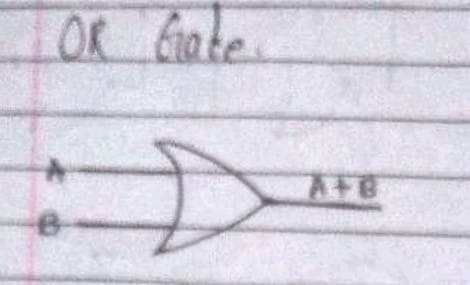 OR Gate.
A
A + B
B